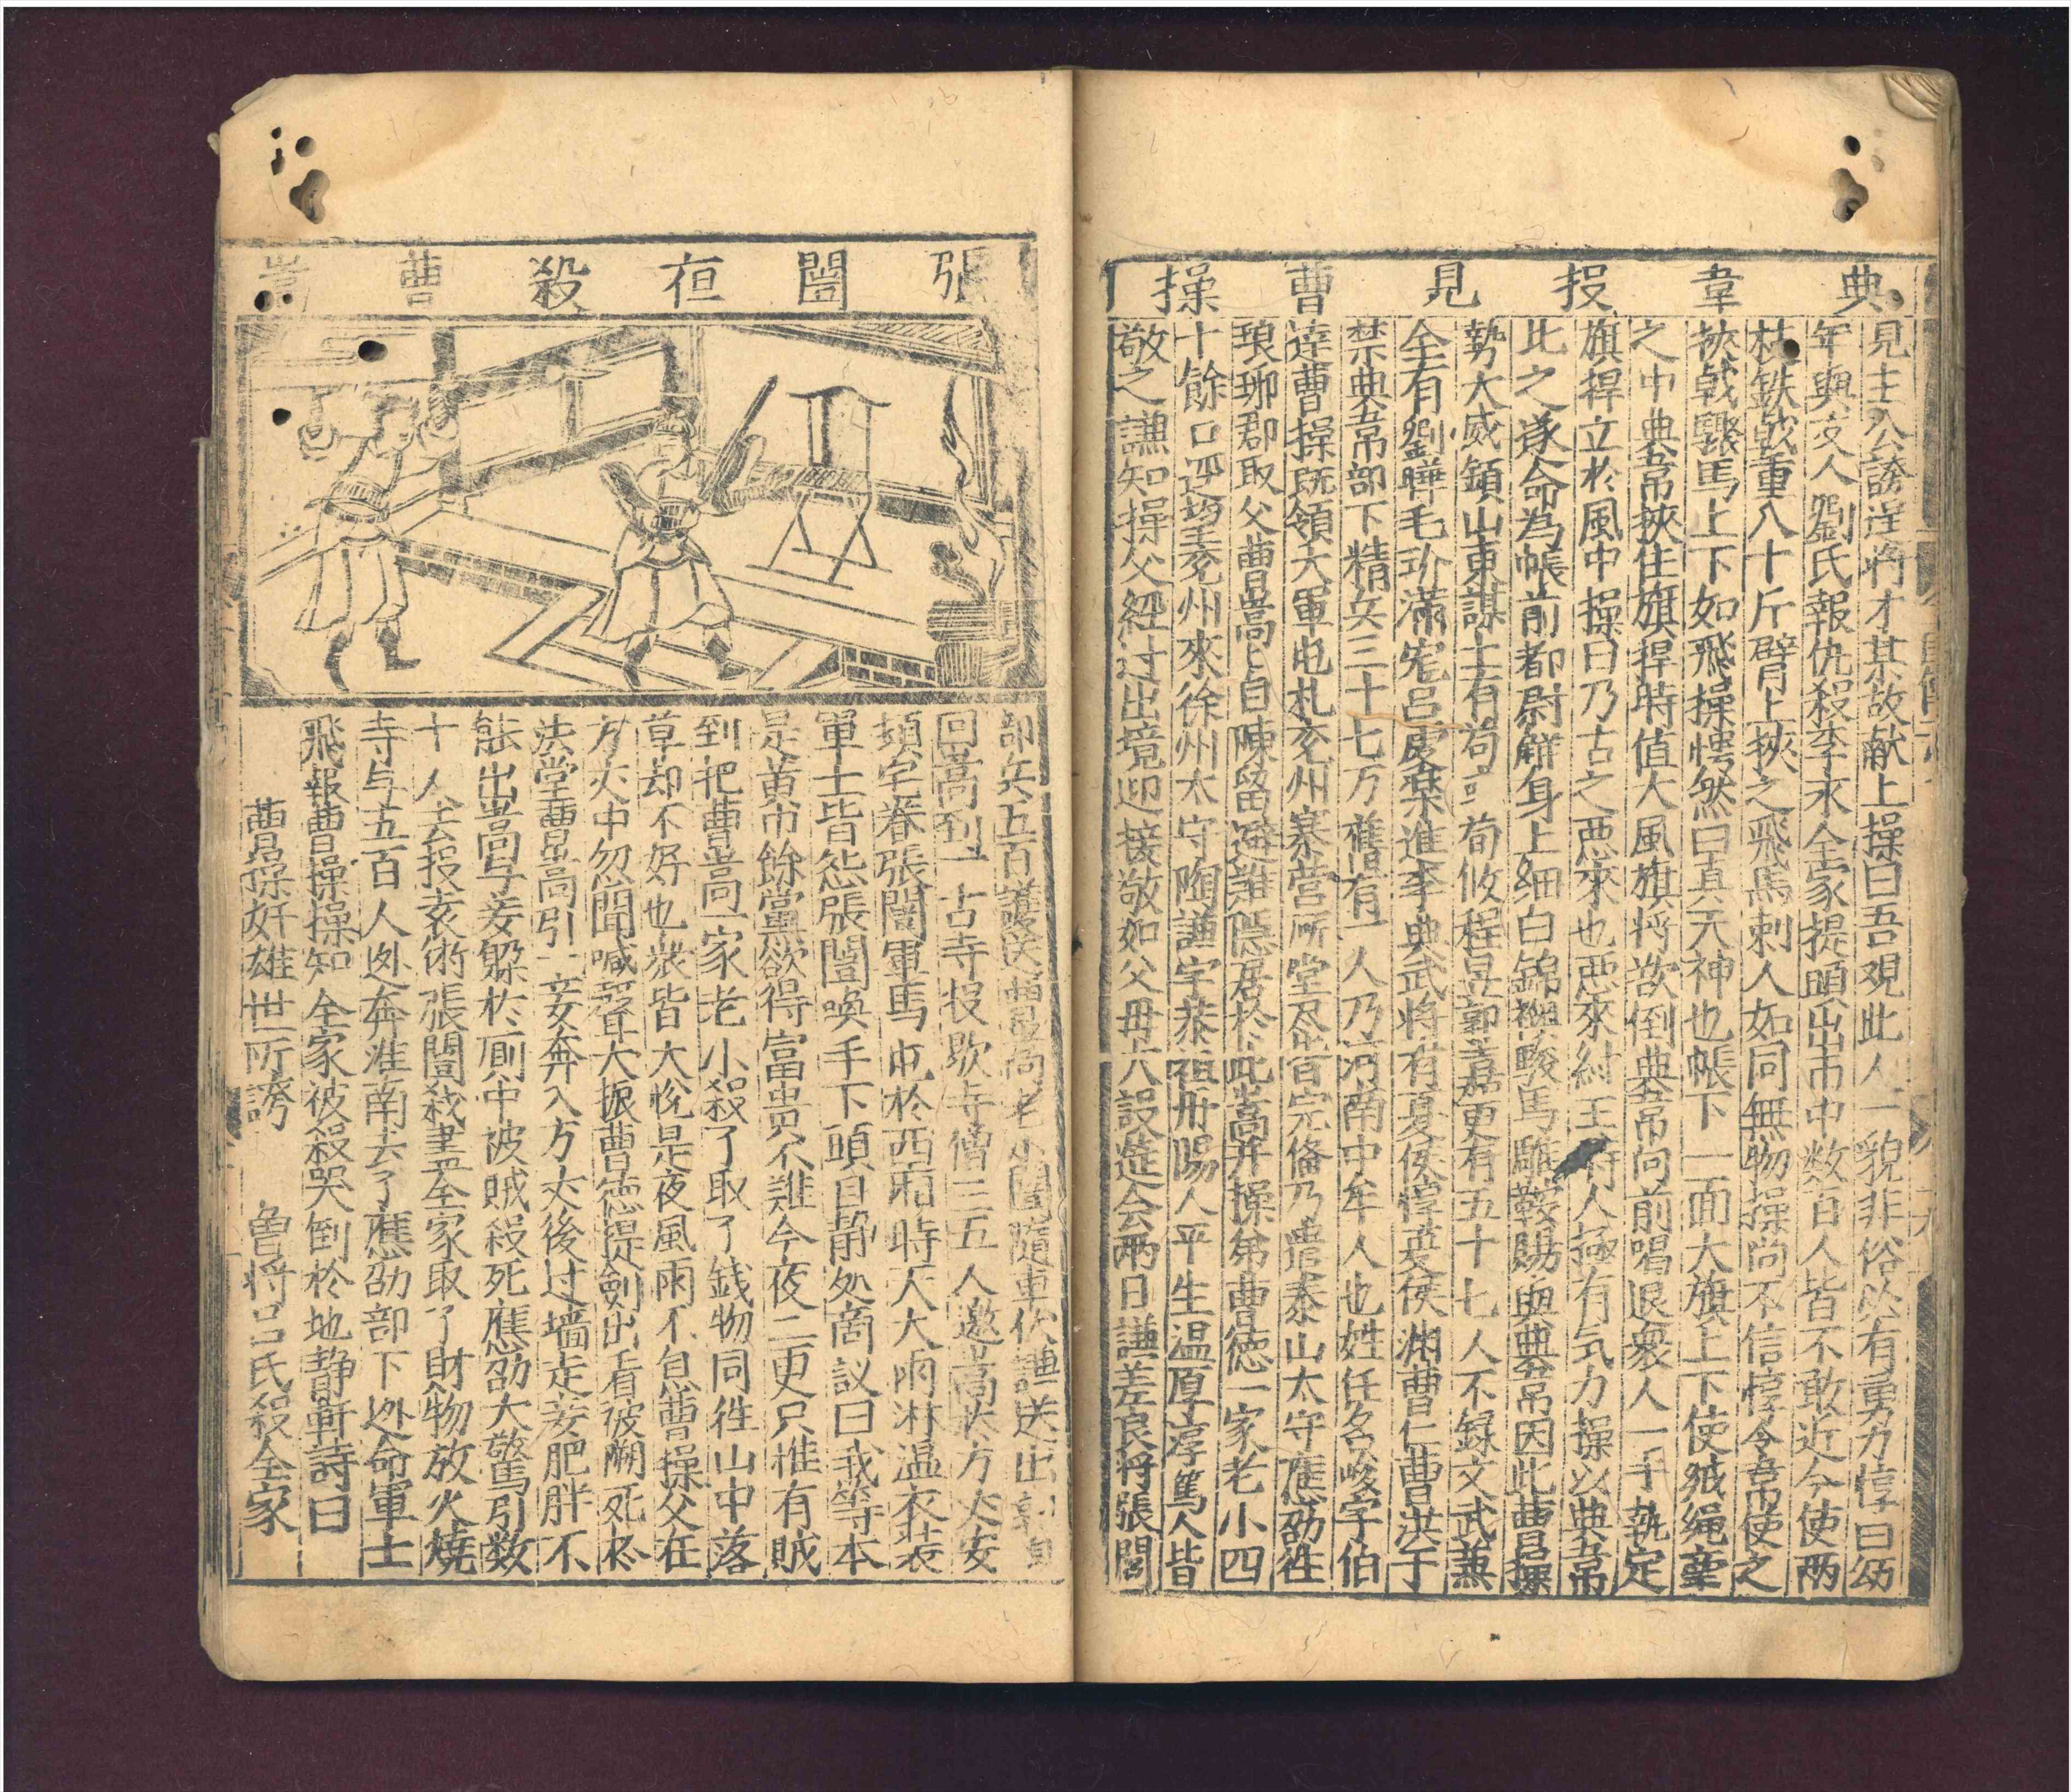 典韋投見曹操
見主公誇逞將才某故献上操曰吾覌此人一貌非俗必有勇力惇曰幼
年與友人劉氏報仇殺李永全家提頭出市中数百人皆不敢近今使两
枝鉄戟重八十斤臂上挾之飛馬刺人如同無物操尚不信惇令韋使之
挾戟驟馬上下如飛操愕然曰真天神也帳下一面大旗上下使絨繩牽
之中典韋挾住旗捍時值大風旗将欲倒典韋向前唱退衆人一手執定
旗捍立於風中操曰乃古之悪來也悪來紂王将人極有気力操以典韋
比之遂命為帳前都尉觧身上細白錦襖駿馬雕鞍賜與典韋因此曹操
勢大威鎮山東謀士有荀彧荀攸程昱郭嘉更有五十七人不録文武蕪
全有劉曄毛玠滿宠吕虔樂進李典武将有夏侯惇夏侯渊曹仁曹洪于
禁典韋部下精兵三十七万舊有一人乃河南中牟人也姓任名峻字伯
逹曹操既領大軍屯札兖州寨营所堂尽皆完俻乃遣泰山太守應劭徃
琅琊郡取父曹嵩嵩自陳留避難隱居於此嵩并操弟曹德一家老小四
十餘口迎望兖州來徐州太守陶謙字恭祖丹陽人平生温厚淳篤人皆
敬之謙知操父經过出境迎接敬如父母大設筵会两日謙差良将張闓
張闓夜殺曹嵩
部兵五百護送曹嵩老小闓隨車仗謙送出郭自
回嵩到一古寺投歇寺僧三五人邀嵩於方丈安
頓宅眷張闓軍馬屯於西廂時天大雨淋温衣装
軍士皆怨張闓唤手下頭目静処商议曰我等本
是黄巾餘黨欲得富貴不难今夜二更只推有賊
到把曹嵩一家老小殺了取了錢物同徃山中落
草却不好也衆皆大悅是夜風雨不息曹操父在
方丈中忽聞喊聲大振曹德提劍出看被搠死於
法堂曹嵩引一妾奔入方丈後过墻走妾肥胖不
能出嵩与妾躲於厠中被賊殺死應劭大驚引数
十人去投袁術張闓殺盡全家取了財物放火燒
寺与五百人迯奔淮南去了應劭部下迯命軍士
飛報曹操操知全家被殺哭倒於地静軒詩曰
曹操奸雄世所誇　曾将吕氏殺全家